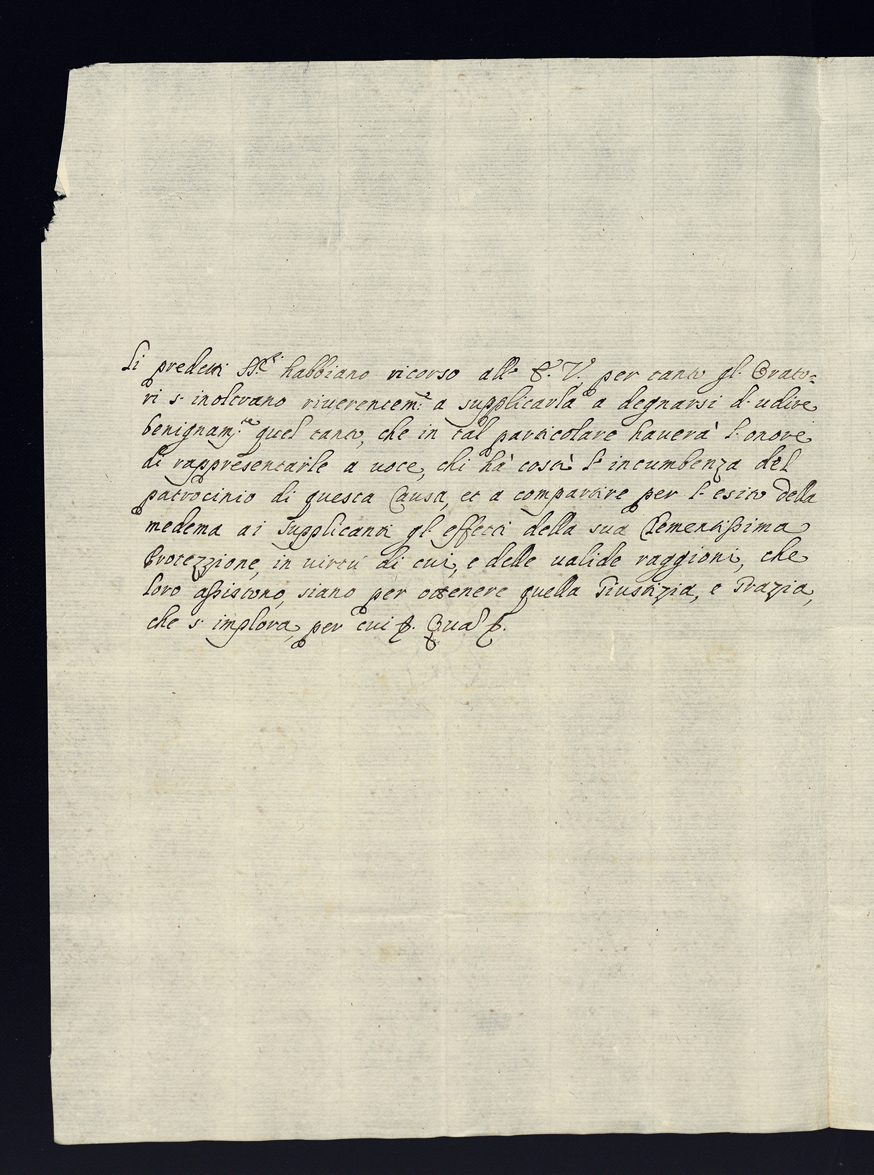 Li predetti habbiano ricorso all' E. V. per tanto gl' Orato=
ri s' inoltrano riuerentem.e a supplicarla a degnarsi d' udire
benignam.te quel tanto, che in tal particolare hauerà l' onore
di rappresentarle a uoce, chi hà costà l' incumbenza del
patrocinio di questa Causa, et a compartire per l' esito della
medema ai Supplicanti gl' effetti della sua Clementissima
Protezzione, in uirtù di cui, e delle ualide raggioni, che
loro assistono, siano per ottenere quella Giustizia, e Grazia,
che s' implora, per cui &. Qua &.